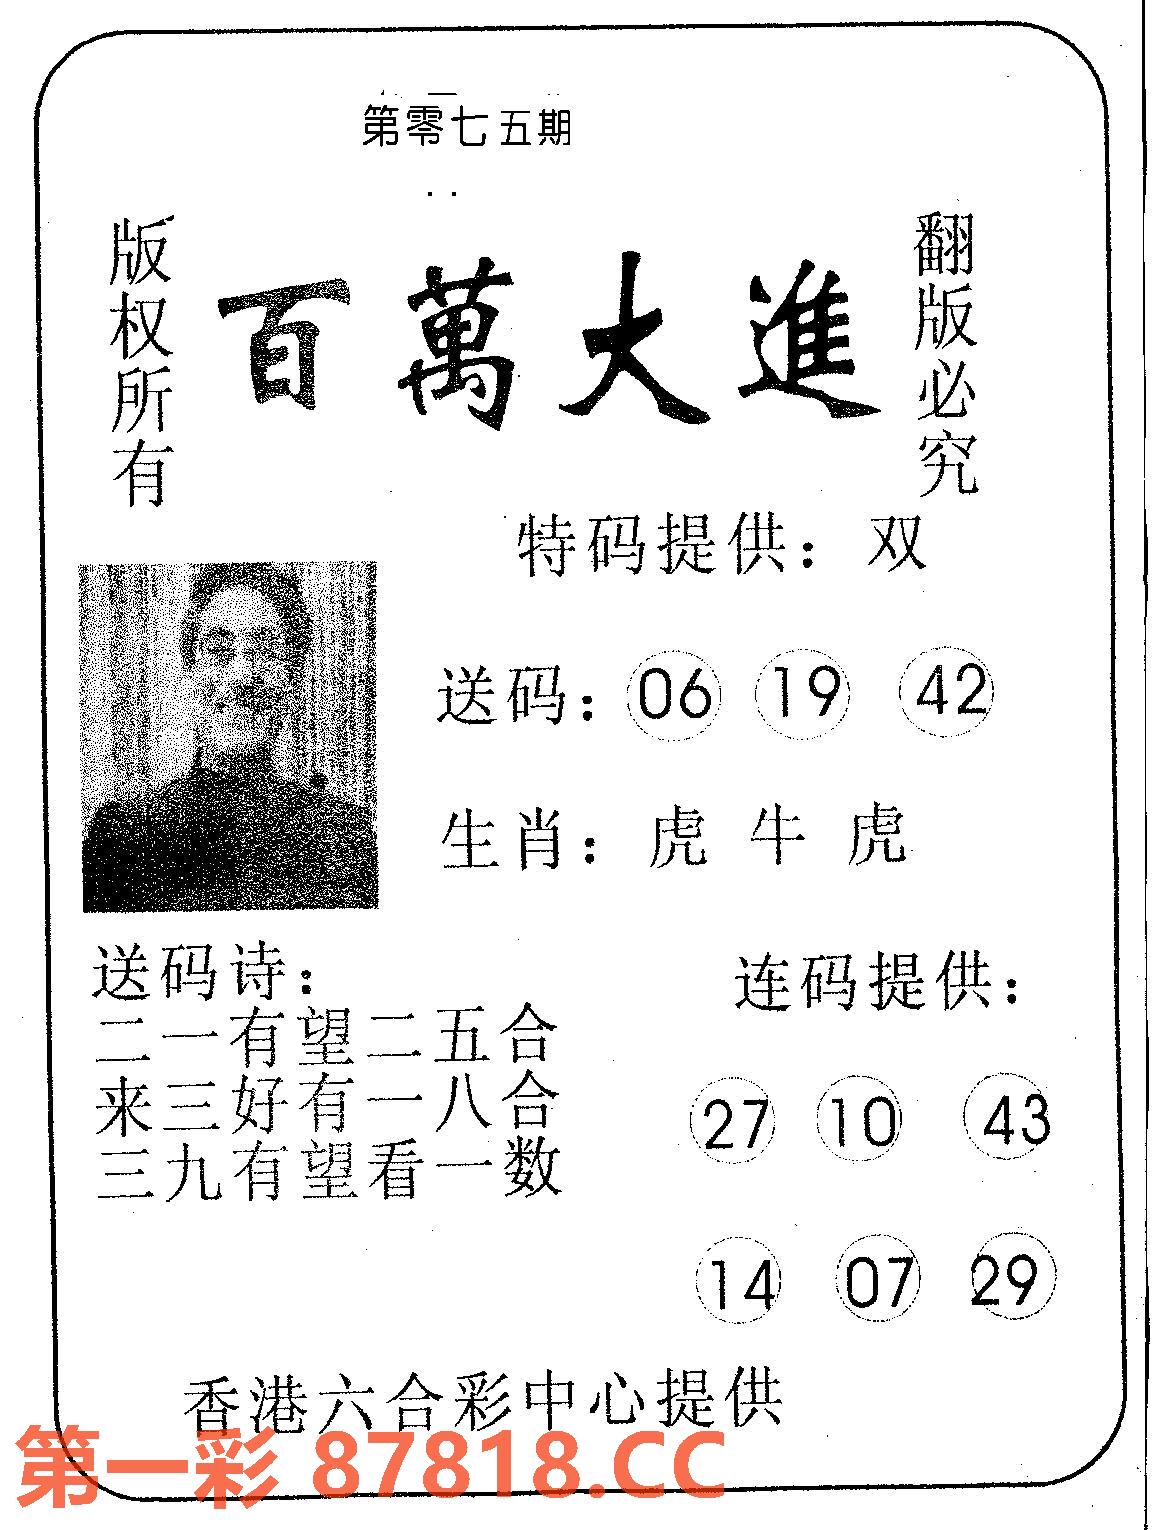 第零七五期
版权所有
百萬大進
翻版必究
特码提供：双
送码：06 19 42
生肖：虎 牛 虎
送码诗：
二一有望二五合
来三好有一八合
三九有望看一数
连码提供：
27 10 43
14 07 29
香港六合彩中心提供
第一彩 87818.CC